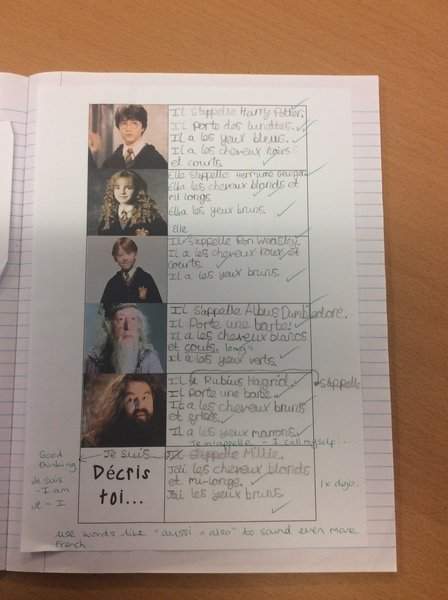 Il s'appelle Harry Potter.
Il porte des lunettes.
Il a les yeux bleus.
Il a les cheveux noirs
et courts.
Elle s'appelle Hermione Granger
Elle a les cheveux blonds et
mi longs.
Elle a les yeux bruns.
Elle
Il s'appelle Ron Weasley.
Il a les cheveux roux et
courts.
Il a les yeux bruns.
Il s'appelle Albus Dumbledore.
Il Porte une barbe.
Il a les cheveux blancs
et couts. longs
Il a les yeux verts.
Il Rubius Hagrid. s'appelle
Il Porte une barbe.
Il a les cheveux bruns
et grises.
Il a les yeux marrons.
Je m'appelle - I call myself ...
Good
thinking
Je suis s'appelle Millie.
Décris
toi...
J'ai les cheveux blonds
et mi-longs.
J'ai les yeux bruns.
Je suis
- I am
Je - I
1x dojo.
use words like "aussi = also" to sound even more
French.